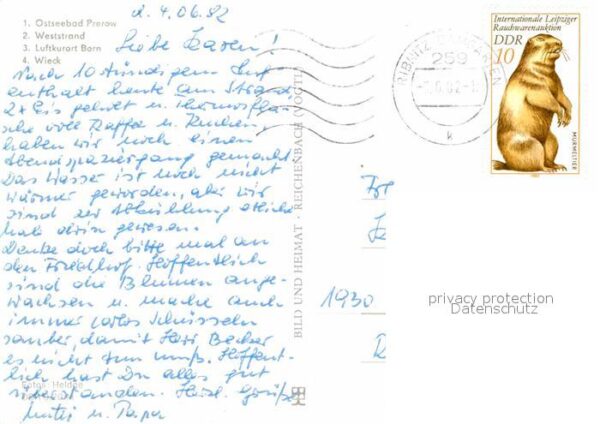 d. 4.06.82
1. Ostseebad Prerow
2. Weststrand
3. Luftkurort Born
4. Wieck
Liebe Karen!
Nach 10 stündigem Auf
enthalt heute am Strand,
2x Eis geholt u. Thermosfla-
sche voll Kaffee u. Kuchen,
haben wir noch einen
Abendspaziergang gemacht.
Das Wasser ist noch nicht
wärmer geworden, aber wir
sind zur Abkühlung etliche
mal drin gewesen.
Denke doch bitte mal an
den Friedhof. Hoffentlich
sind die Blumen ange-
wachsen u. mache auch
immer
sauber, damit Herr Becker
es nicht tun muß. Hoffent-
lich hast Du alles gut
überstanden. Herzl. Grüße
Mutti u. Papa
Fotos: Heldge
BILD UND HEIMAT · REICHENBACH (VOGTL)
RIBNITZ-DAMGARTEN
259
k
Internationale Leipziger
Rauchwarenauktion
DDR
10
MURMELTIER
1930
privacy protection
Datenschutz